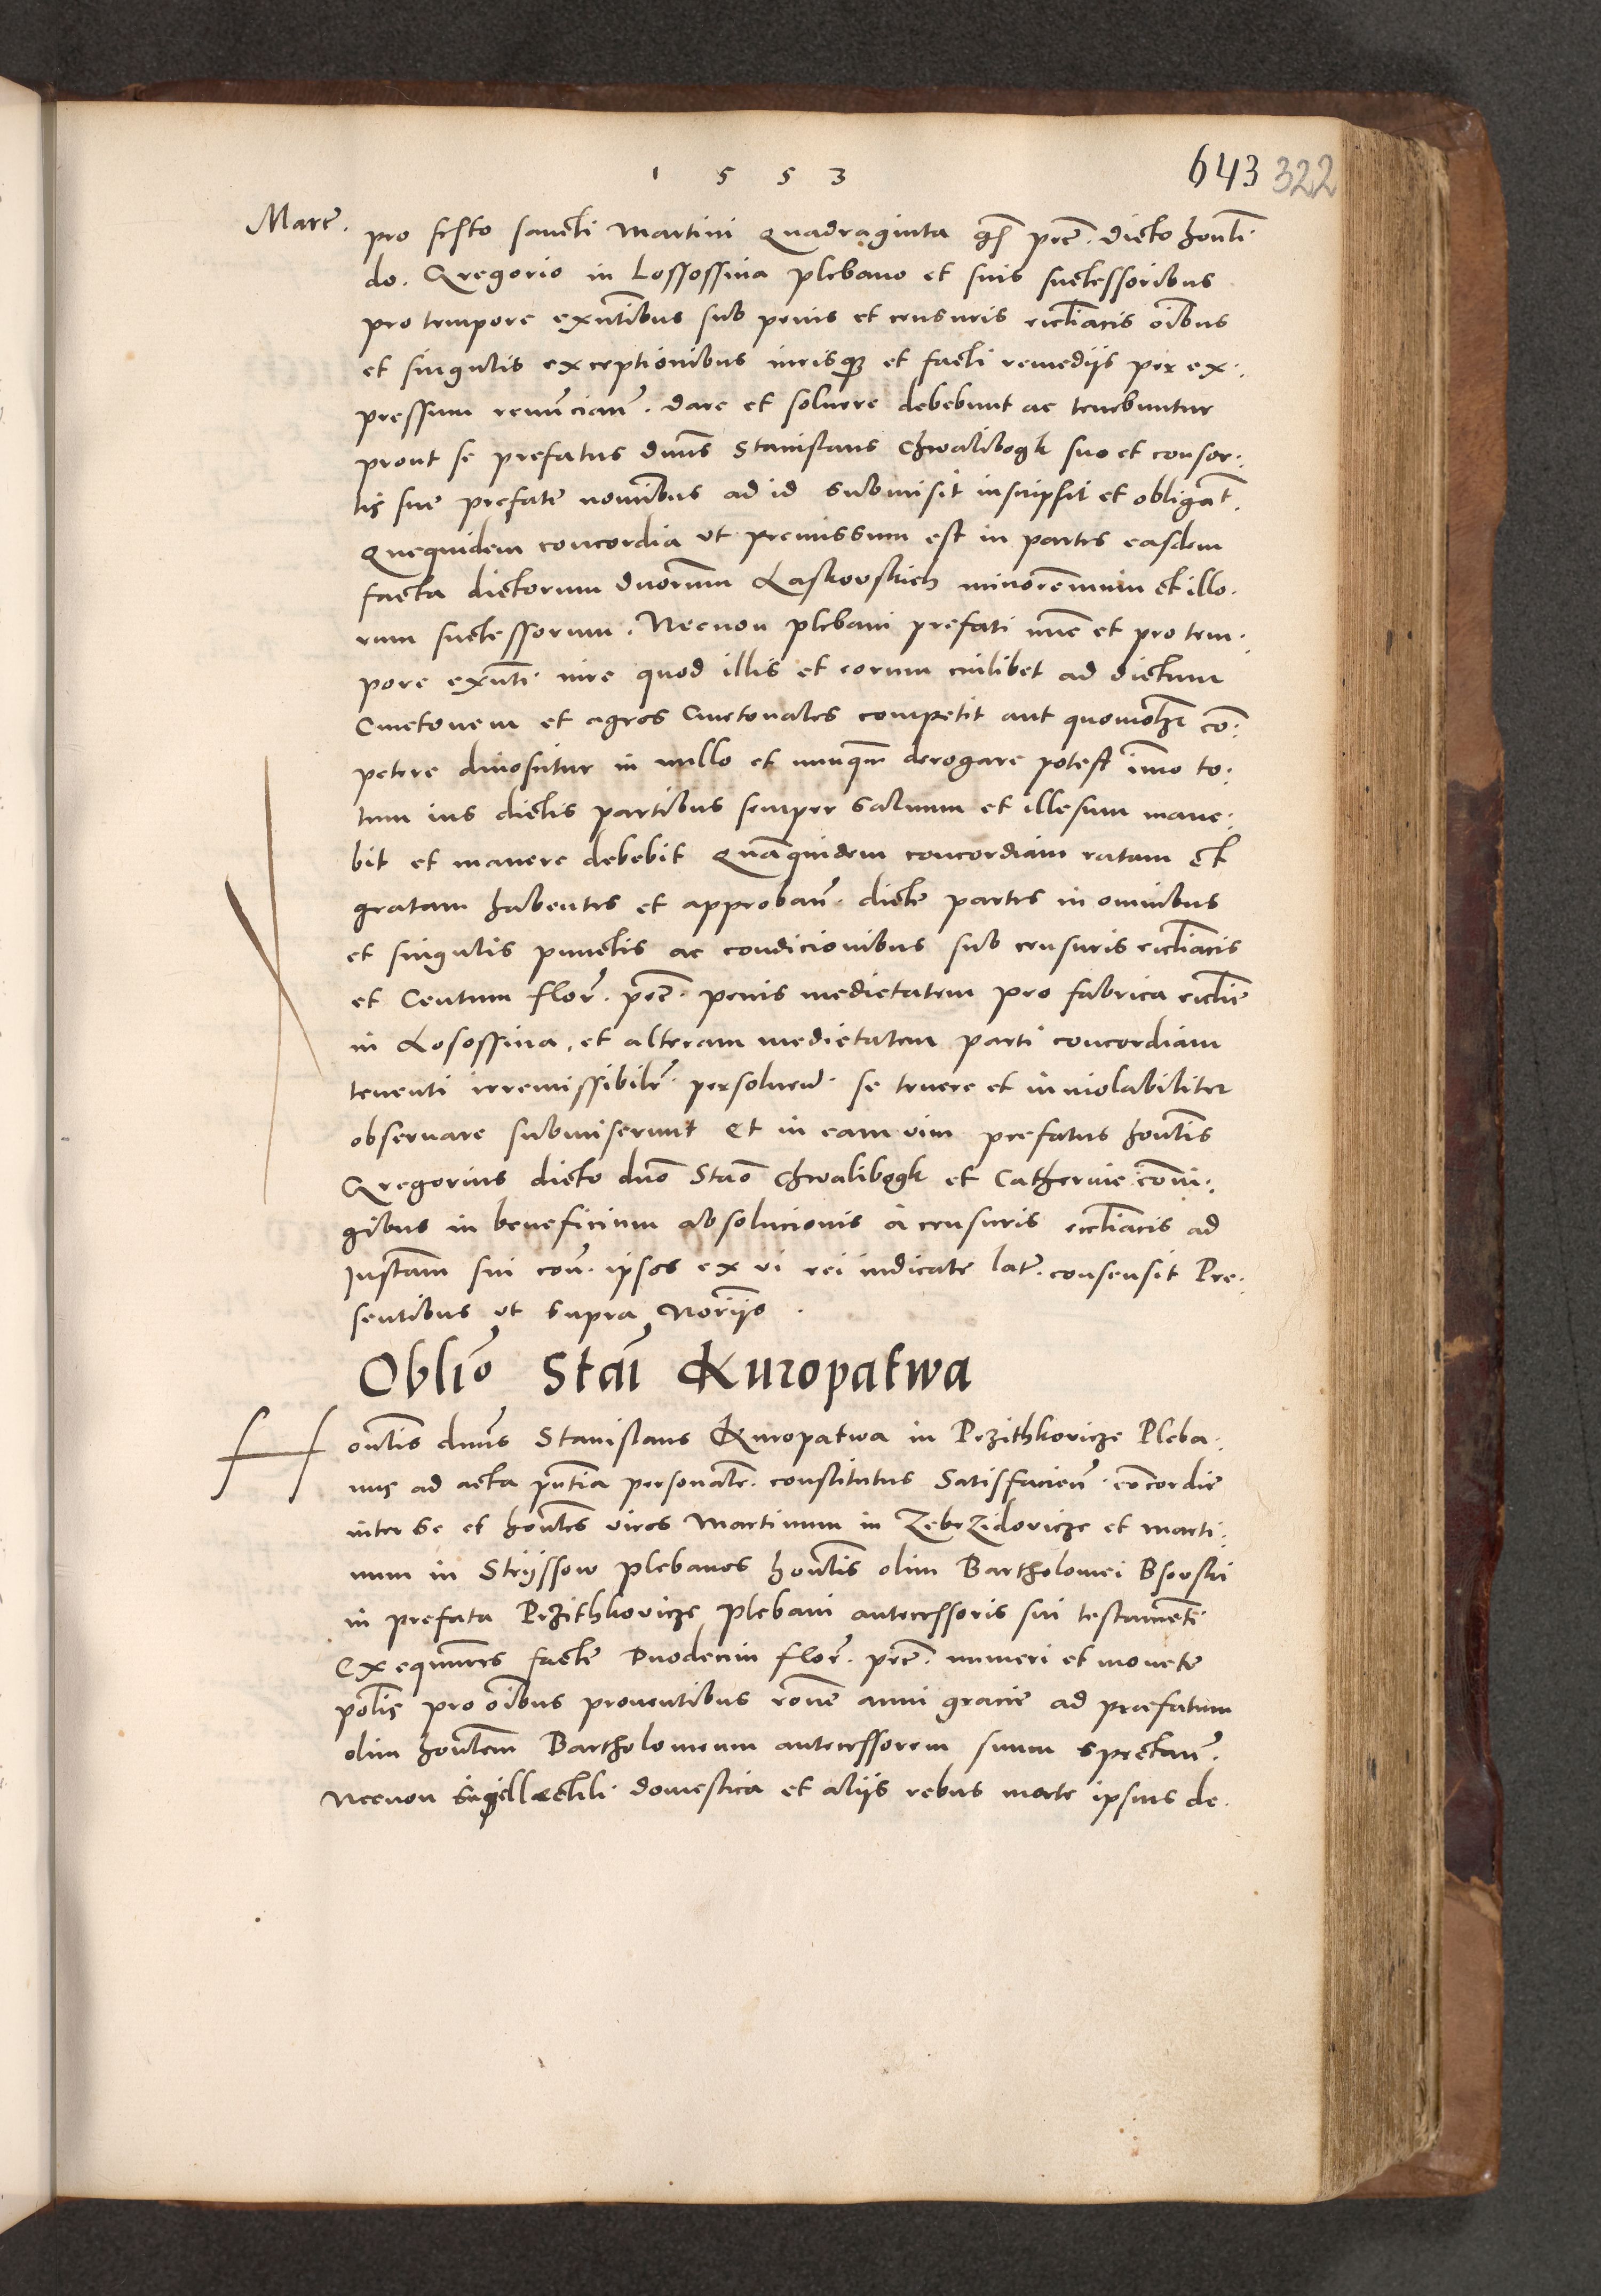 1 5 5 3
643 322
Marc̃.
pro festo sancti Martini Quadraginta gſ prẽ. dicto honli
do. Gregorio in Lossossina plebano et suis successoribus
pro tempore exñtibus sub penis et censuris ecclĩacis oĩbus
et singulis exceptionibus iurisq3 et facti remedijs per ex:
pressum renũcianᷤ. dare et soluere debebunt ac tenebuntur
prout se prefatus dnũs Stanislaus Chwalibogk suo et consor:
tis sue prefate noĩmbus ad id submisit inscripsit et obligãt.
Quequidem concordia vt premissum est in partes easdem
facta dictorum dnorũm Laskovskich minorẽnnium et illo.
rum successorum. Necnon plebani prefati nũc et pro tem:
pore exñti iure quod illis et eorum cuilibet ad dictum
Cmetonem et agros Cmetonales competit aut quomol3 cõ:
petere dinoscitur in nullo et nunq̃ derogare potest ĩmo to:
tum ius dictis partibus semper saluum et illesum mane:
bit et manere debebit Quãquidem concordiam ratam et
gratam habentes et approbanᷤ. dicte partes in omnibus
et singulis punctis ac condicionibus sub censuris ecclĩacis
et Centum florᷤ. prẽ. penis medietatem pro fabrica ecclĩe
in Lososſina, et alteram medietatem parti concordiam
tenenti irremissibilr̃. persoluenᷤ. se tenere et inuiolabiliter
obseruare submiserunt Et in eam vim prefatus honl̃is
Gregorius dicto dnõ Staõ Chwalibogk et Catherine cõiu:
gibus in beneficium absolucionis a censuris ecclĩacis ad
Instam̃ sui conᷤ. ipsos ex vi rei iudicate latᷤ. consensit Pre:
sentibus vt supra Norĩjs.
Oblĩo Staĩ Kuropatwa
Honl̃is dnũs Stanislaus Kuropatwa in Przithkovicze Pleba:
nus ad acta pñtia personalr̃. constitutus Satisfacienᷤ. cõcordie
inter se et honl̃es viros Martinum in Zebrzidovicze et Marti:
num in Strijssow plebanos honl̃is olim Bartholomei Bsovski
in prefata Przithkovicze plebani antecessoris sui testamẽti
Exequutores facte Duodecim florᷤ. prẽ. numeri et monete
pol̃is pro oĩbus prouentibus rõne anni gracie ad præfatum
olim honl̃em Bartholomeum antecessorem suum spectanᷤ.
Necnon supellectili domestica et alijs rebus morte ipsius de.